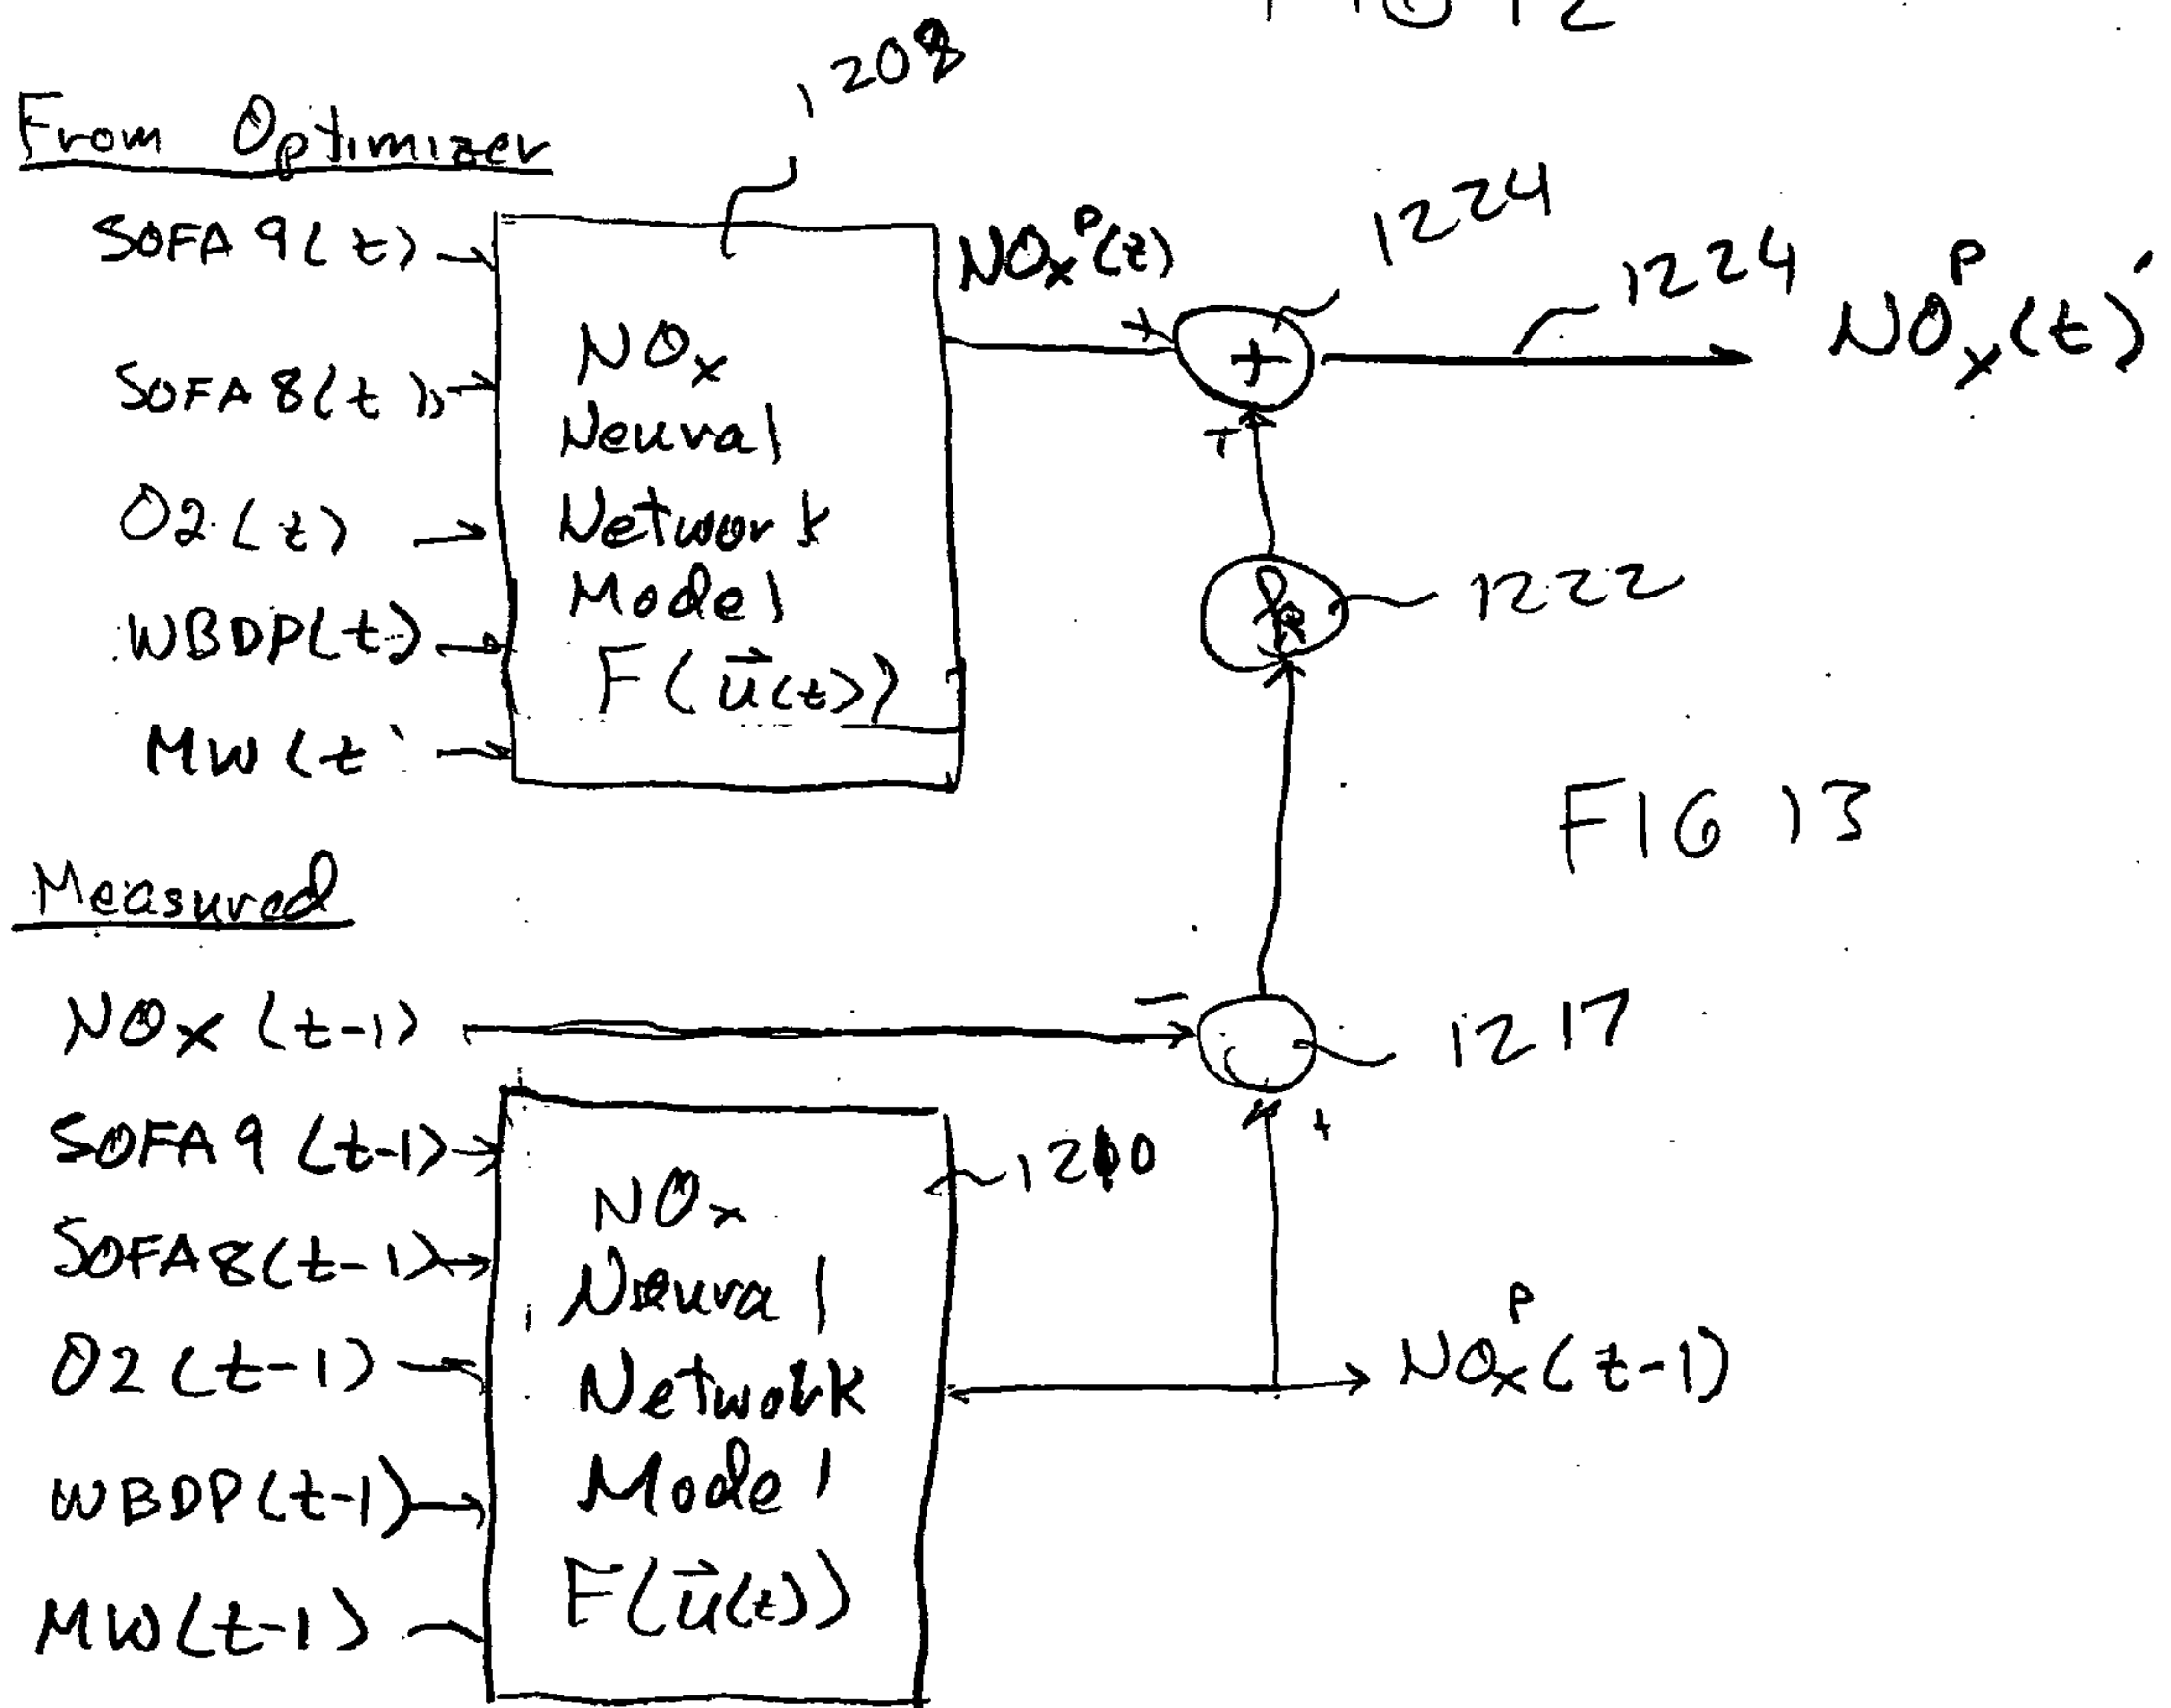 FIG 12
From Optimizer
1208
SOFA 9(t)
SOFA 8(t)
O2(t)
WBDP(t)
MW(t
NOx
Neural
Network
Model
F(u⃗(t))
NOxᴾ(t)
1224
1224
NOxᴾ(t)'
+
+
+
k
1222
FIG 13
Measured
NOx (t-1)
-
1217
+
SOFA9 (t-1)
SOFA8(t-1)
O2(t-1)
WBDP(t-1)
MW(t-1)
1210
NOx
Neural
Network
Model
F(u⃗(t))
NOxᴾ(t-1)